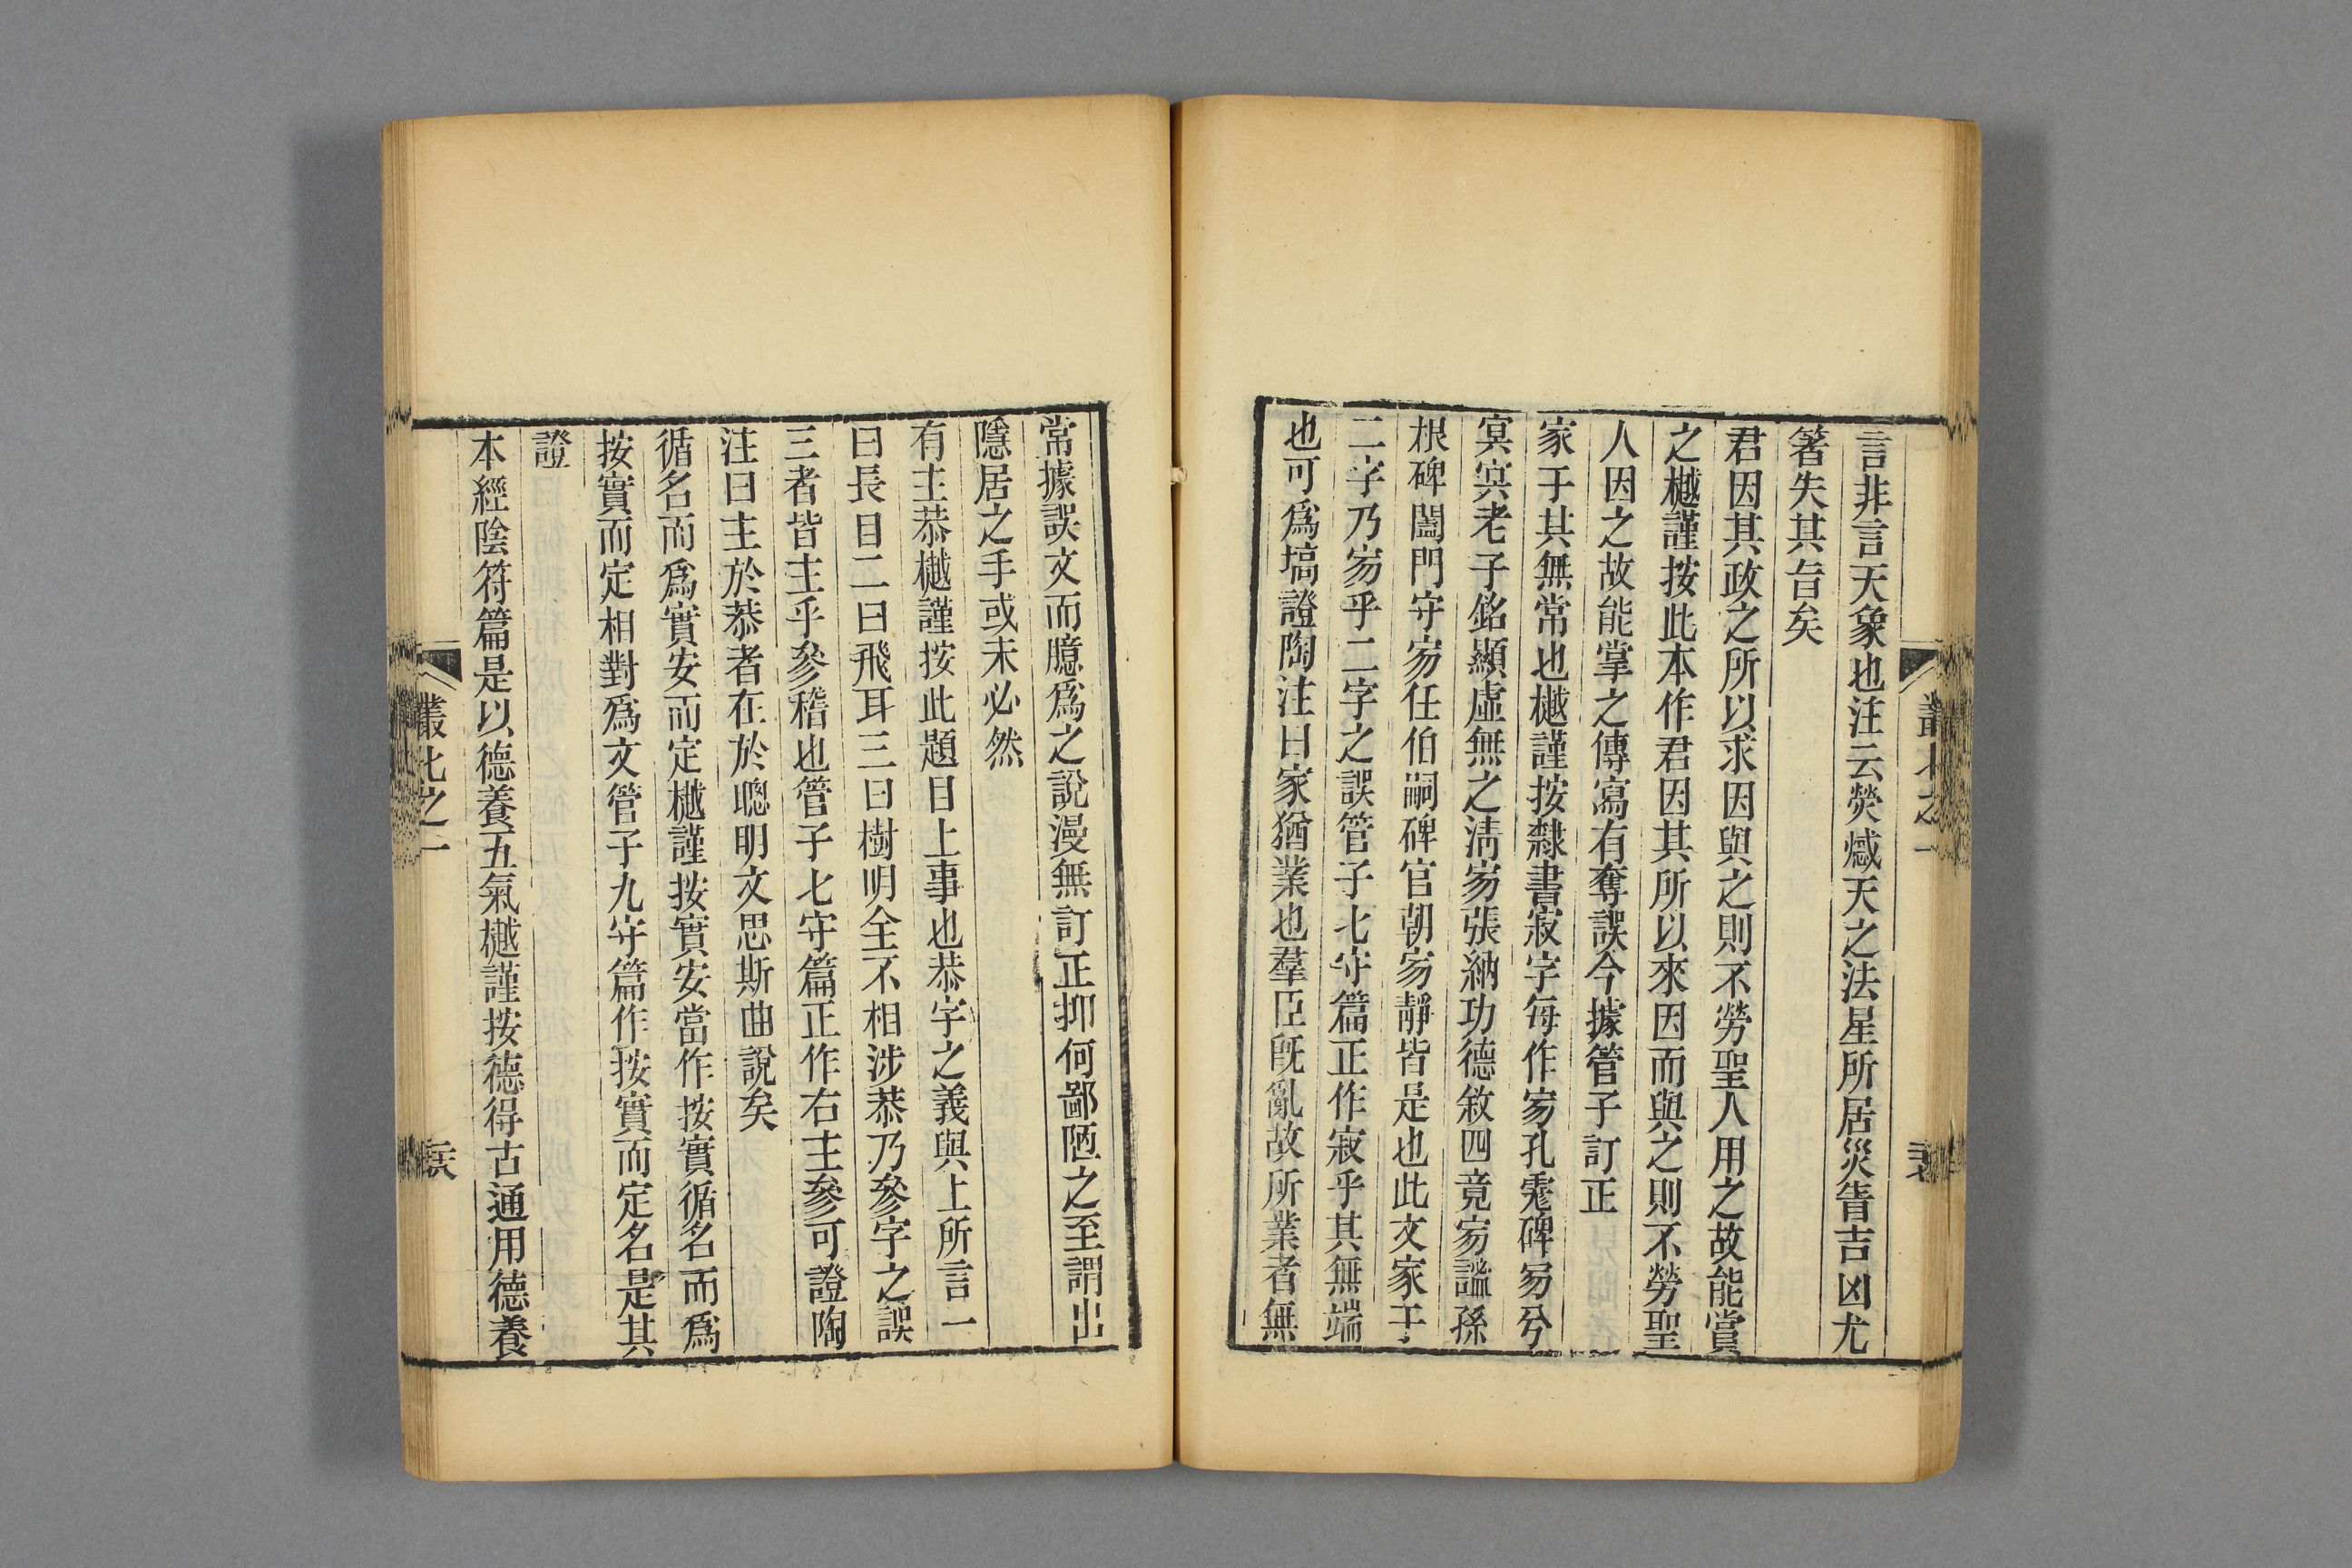 言非言天象也注云熒惑天之法星所居災眚吉凶尤
箸失其旨矣
君因其政之所以求因與之則不勞聖人用之故能賞
之樾謹按此本作君因其所以來因而與之則不勞聖
人因之故能掌之傳寫有奪誤今據管子訂正
家于其無常也樾謹按隸書寂字每作㝥孔霮碑㝥兮
冥冥老子銘顯虛無之清㝥張納功德敘四竟㝥謐孫
根碑闔門守㝥任伯嗣碑官朝㝥靜皆是也此文家于
二字乃㝥乎二字之誤管子七守篇正作寂乎其無端
也可爲搞證陶注曰家猶業也羣臣旣亂故所業者無
常據誤文而臆爲之說漫無訂正抑何鄙陋之至謂出
隱居之手或未必然
有主恭樾謹按此題目上事也恭字之義與上所言一
曰長目二曰飛耳三曰樹明全不相涉恭乃參字之誤
三者皆主乎參稽也管子七守篇正作右主參可證陶
注曰主於恭者在於聰明文思斯曲說矣
循名而爲實安而定樾謹按實安當作按實循名而爲
按實而定相對爲文管子九守篇作按實而定名是其
證
本經陰符篇是以德養五氣樾謹按德得古通用德養
叢七之一